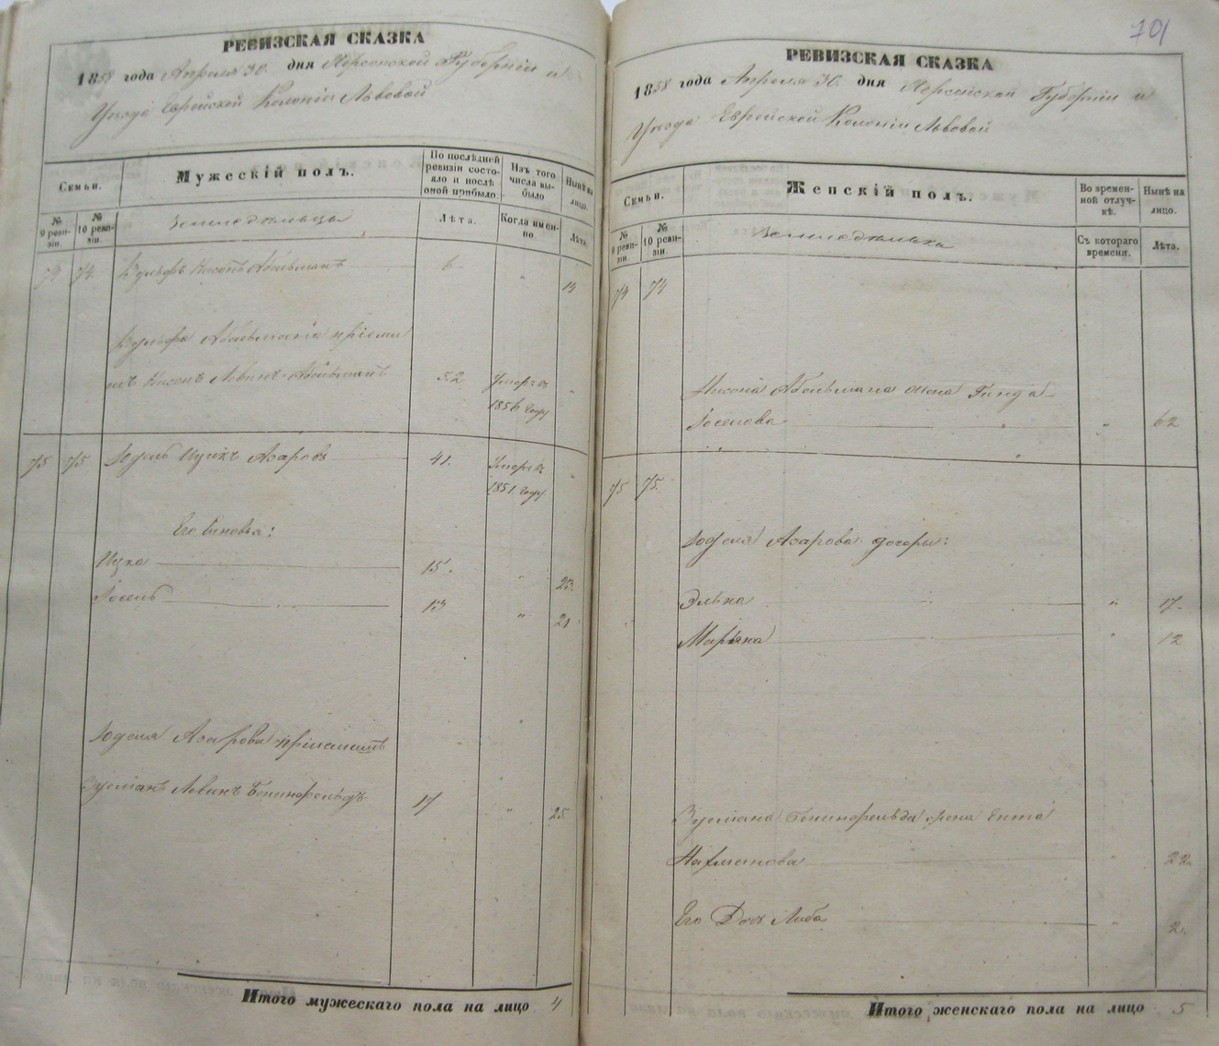 РЕВИЗСКАЯ СКАЗКА
1858 года Апреля 30. дня Херсонской Губерніи и
Уезда Еврейской Колоніи Львовой
Семьи.
Мужескій полъ.
По послѣдней ревизіи состояло и послѣ оной прибыло.
Изъ того числа выбыло
Нынѣ на лицо.
№ 9 ревизіи.
№ 10 ревизіи.
Земледѣльцы
Лѣта.
Когда именно.
Лѣта.
74 74. Вульфъ Абельманъ 6 "
Вульфа Абельмана
Левинъ Абельманъ 52 Умеръ въ "
1856 году
75 75 Іодель Ицикъ Азаровъ 41. Умеръ въ "
1851 году
Его Сыновья:
Ицка 15. " 23.
Іосель 13 " 21
Іоделя Азарова
Зусманъ Левинъ 17 " 25
Итого мужескаго пола на лицо 4
701
РЕВИЗСКАЯ СКАЗКА
1858 года Апреля 30. дня Херсонской Губерніи и
Уезда Еврейской Колоніи Львовой
Семьи.
Женскій полъ.
Во временной отлучкѣ.
Нынѣ на лицо.
№ 9 ревизіи.
№ 10 ревизіи.
Съ котораго времени.
Лѣта.
74 74
Абельмана жена Гинда
Іоселова " 62
75 75.
Іоделя Азарова дочери:
Элька " 17.
Марьяна " 12
Зусмана жена Ента
Нахманова " 22.
Его Дочь Либа " 2.
Итого женскаго пола на лицо 5